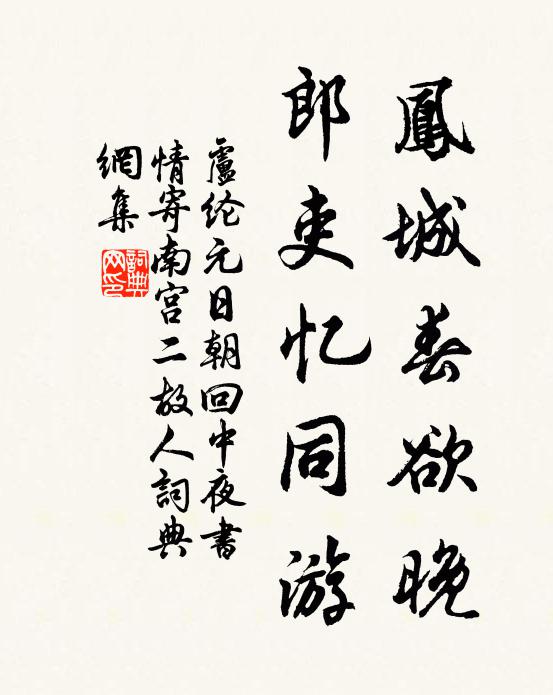 鳳城春欲晚
郎吏忆同游
盧纶元日朝回中夜書
情寄南宫二故人詞典
網集
詞典
网印